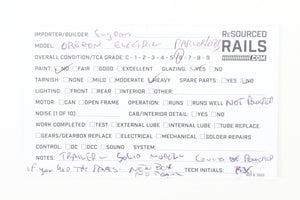 IMPORTER/BUILDER
RESOURCED
RAILS
.COM
MODEL OBERON ELECTRIC
OVERALL CONDITION/TCA GRADE: C - 1 - 2 - 3 - 4 - 5 - 6 - 7 - 8 - 9
PAINT: NO FAIR GOOD EXCELLENT GLAZING: YES NO
TARNISH: NONE MILD MODERATE HEAVY SPARE PARTS: YES NO
LIGHTING: FRONT REAR INTERIOR OTHER:
MOTOR: CAN OPEN FRAME OPERATION: RUNS RUNS WELL NOT POWERED
NOISE (1 OF 10): CAB/INTERIOR DETAIL: YES NO
WORK COMPLETED: TEST EXTERNAL LUBE INTERNAL LUBE TUBE REPLACE
GEARS/GEARBOX REPLACE ELECTRICAL MECHANICAL SOLDER REPAIRS
CONTROL: DC DCC SOUND SYSTEM:
NOTES: TRAILER - SOLID MODEL COULD BE POWERED
if you had the PARTS. NEW BOX
TECH INITIALS: